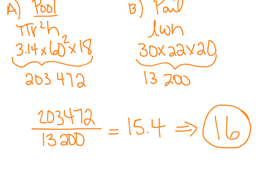 A) Pool
πr²h
3.14x60²x18
203 472
B) Pail
lwh
30x22x20
13 200
203472
13 200
= 15.4 ⇒ 16